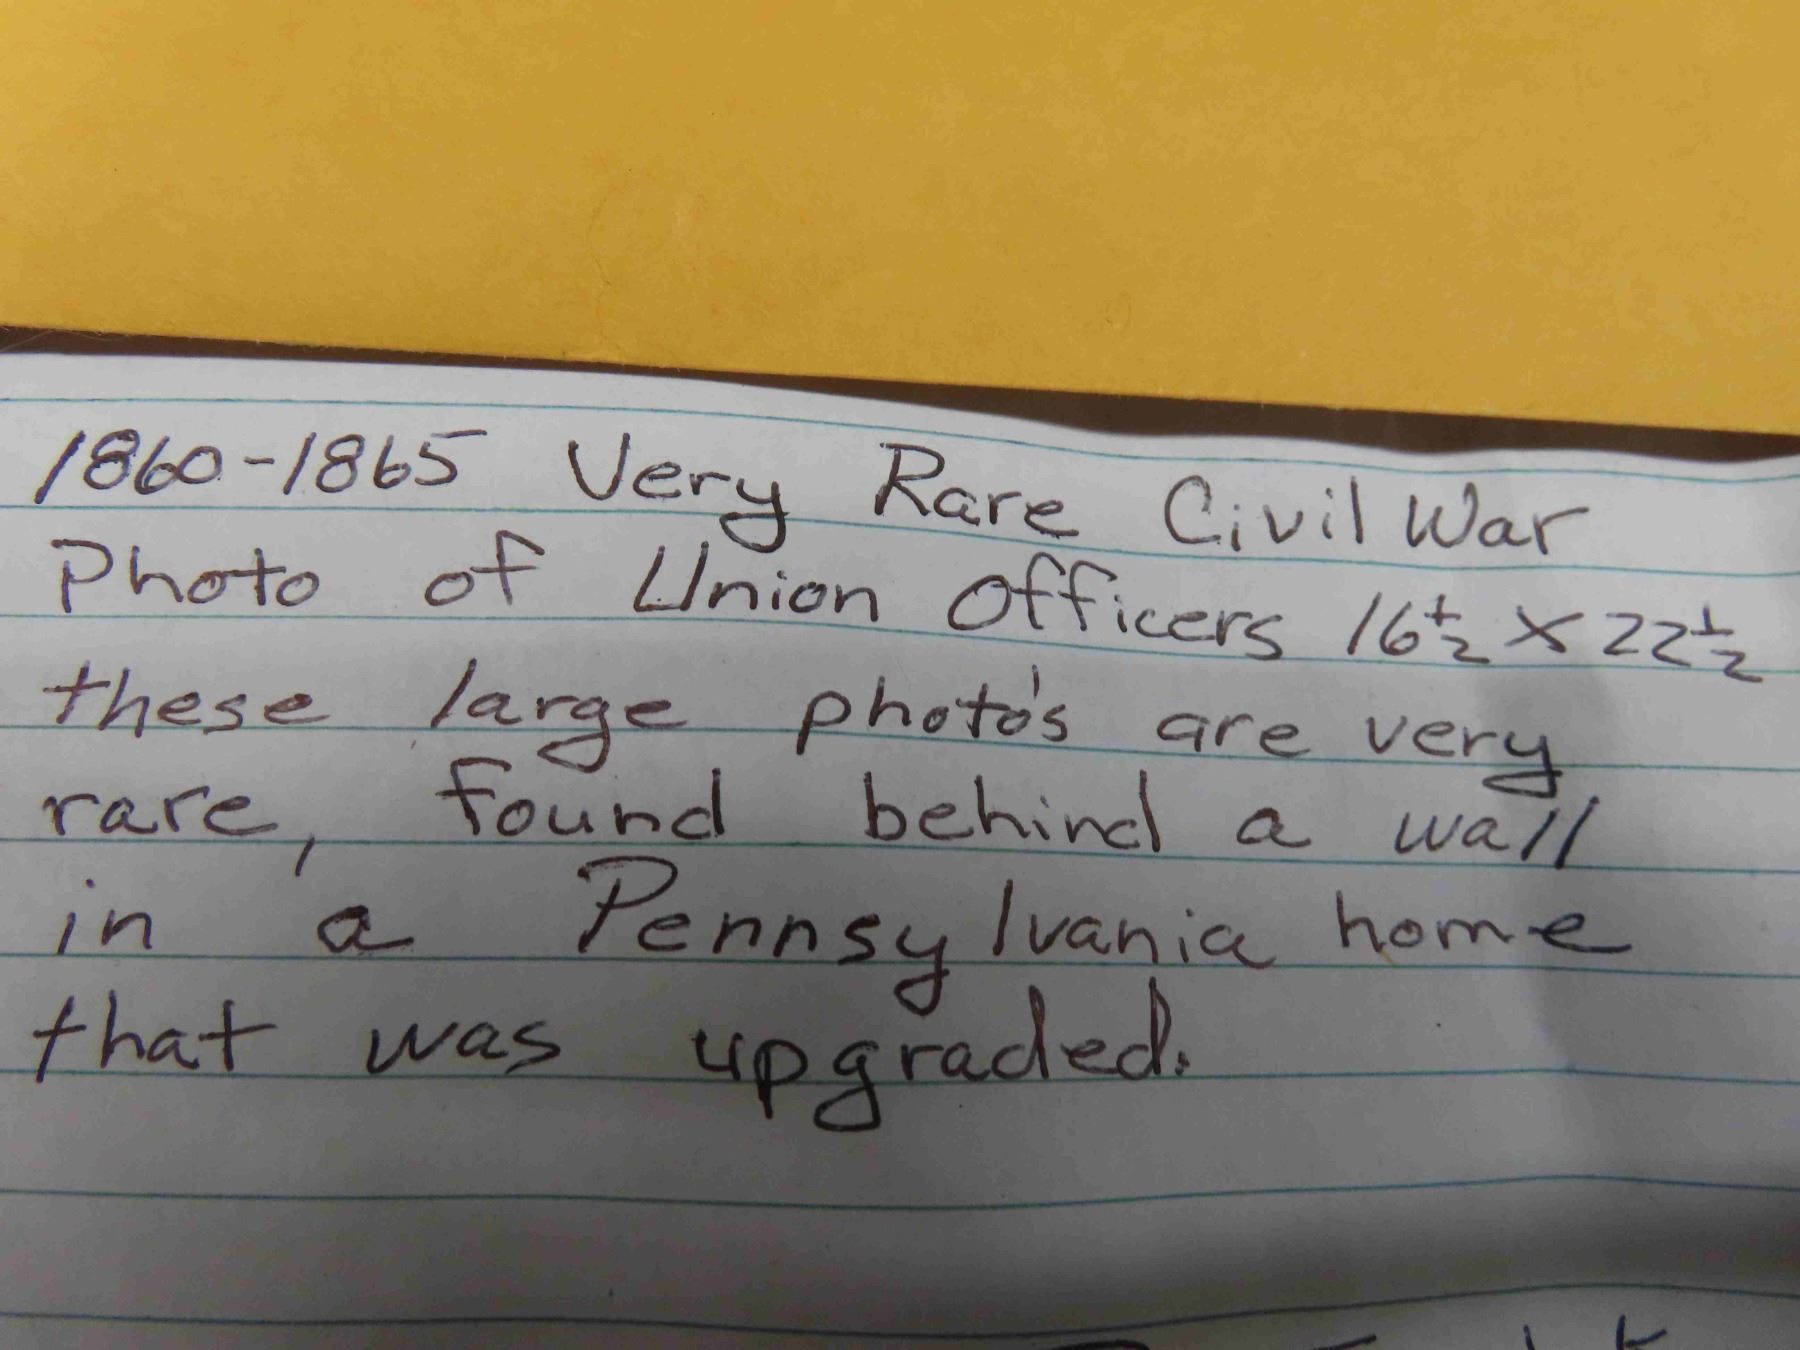 1860-1865 Very Rare Civil War
Photo of Union Officers 16½ X 22½
these large photo's are very
rare, found behind a wall
in a Pennsylvania home
that was upgraded.